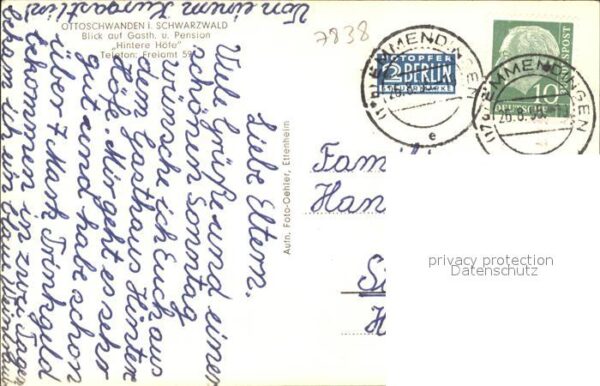 OTTOSCHWANDEN i. SCHWARZWALD
Blick auf Gasth. u. Pension
„Hintere Höfe"
Telefon: Freiamt
7838
NOTOPFER
2 BERLIN
STEUERMARKE
EMMENDINGEN
e
DEUTSCHE BUNDESPOST
10
EMMENDINGEN
Liebe Eltern.
Viele Grüße und einen
schönen Sonntag
wünsche ich Euch aus
dem Gasthaus Hintere
Höfe. Mir geht es sehr
gut und habe schon
über 7 Mark Trinkgeld
bekommen in zwei Tagen
Von einem Kurgast
Aufn. Foto-Oehler, Ettenheim
Fam
Han
privacy protection
Datenschutz